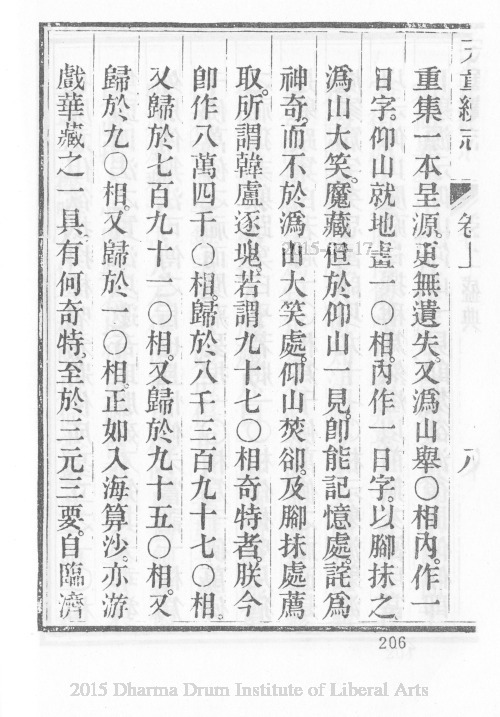 天童續志 卷上 八
重集一本呈源。更無遺失。又溈山舉〇相內。作一
日字。仰山就地畫一〇相。內作一日字。以腳抹之
溈山大笑。魔藏但於仰山一見。卽能記憶處。詫爲
神奇。而不於溈山大笑處。仰山焚卻。及腳抹處薦
取。所謂韓盧逐塊。若謂九十七〇相奇特者。朕今
卽作八萬四千〇相。歸於八千三百九十七〇相。
又歸於七百九十一〇相。又歸於九十五〇相。又
歸於九〇相。又歸於一〇相。正如入海算沙。亦游
戲華藏之一具。有何奇特。至於三元三要。自臨濟
206
2015 Dharma Drum Institute of Liberal Arts